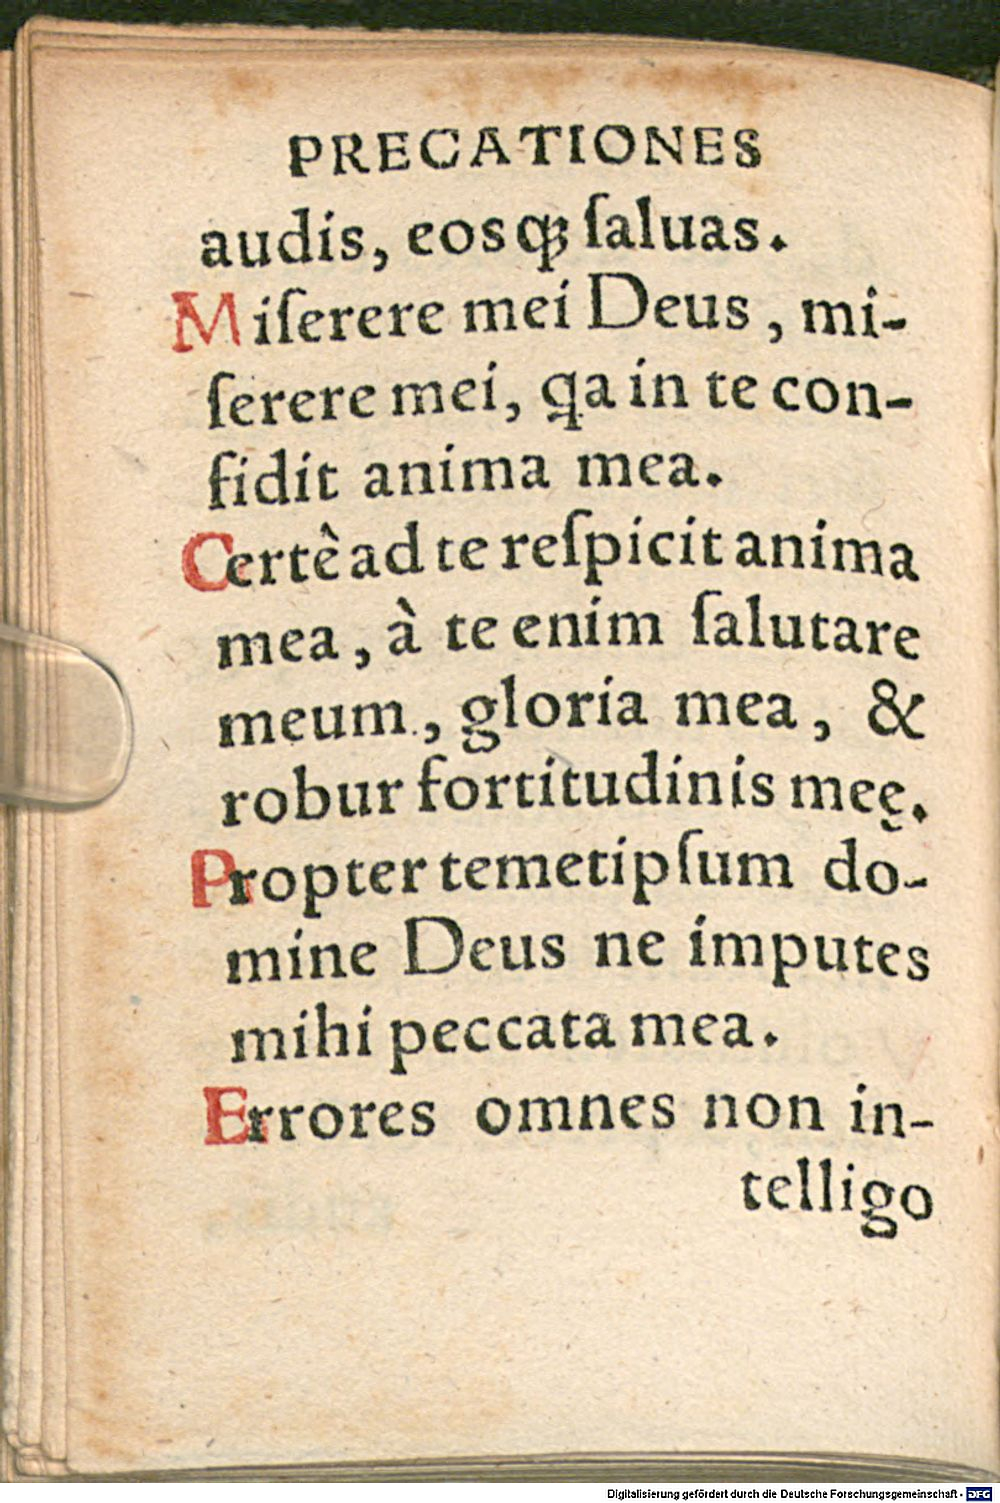 PRECATIONES
audis, eosqꝫ ſaluas.
Miſerere mei Deus, mi-
ſerere mei, qa in te con-
fidit anima mea.
Certè ad te reſpicit anima
mea, à te enim ſalutare
meum, gloria mea, &
robur fortitudinis meę.
Propter temetipſum do-
mine Deus ne imputes
mihi peccata mea.
Errores omnes non in-
telligo
Digitalisierung gefördert durch die Deutsche Forschungsgemeinschaft - DFG